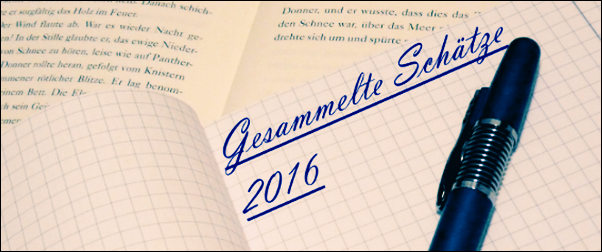 e er sorgfältig das Holz im Feuer.
Der Wind flaute ab. War es wieder Nacht ge-
en? In der Stille glaubte er, das ewige Nieder-
von Schnee zu hören, leise wie auf Panther-
Donner rollte heran, gefolgt vom Knistern
mmener rötlicher Blitze. Er lag benom-
nem Bett. Die
ch sein
Donner, und er wusste, dass dies das
den Schnee war, über das Meer
drehte sich um und spürte
Gesammelte Schätze
2016